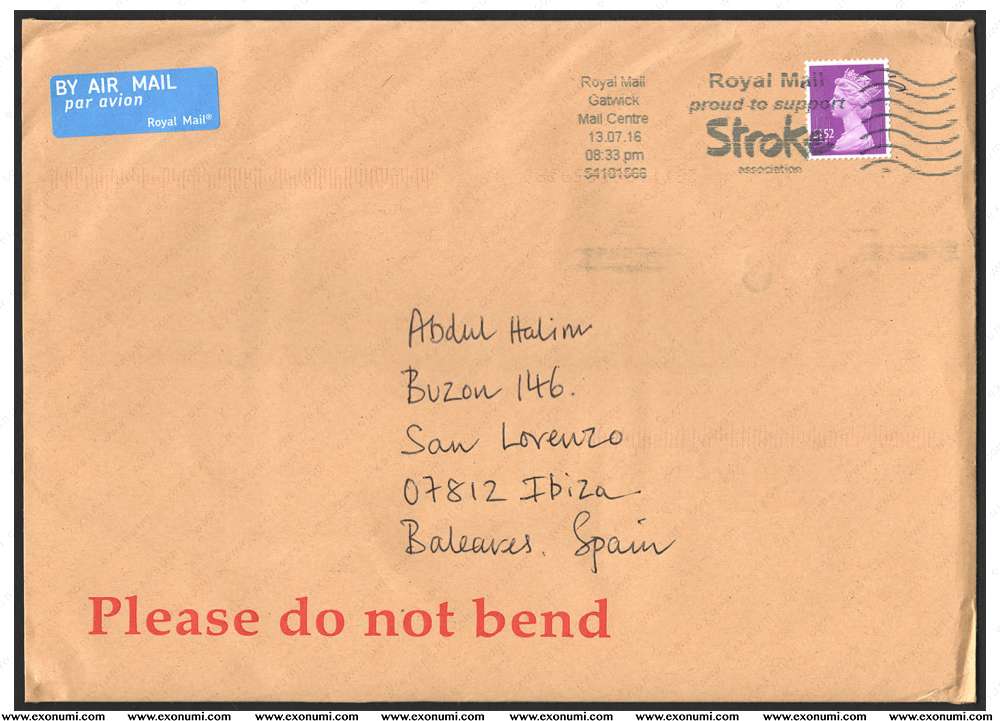 BY AIR MAIL
par avion
Royal Mail®
Royal Mail
Gatwick
Mail Centre
13.07.16
08:33 pm
54101566
Royal Mail
proud to support
Stroke
association
£1.52
Abdul Halim
Buzon 146.
San Lorenzo
07812 Ibiza
Baleares. Spain
Please do not bend
www.exonumi.com www.exonumi.com www.exonumi.com www.exonumi.com www.exonumi.com www.exonumi.com www.exonumi.com www.exonumi.com